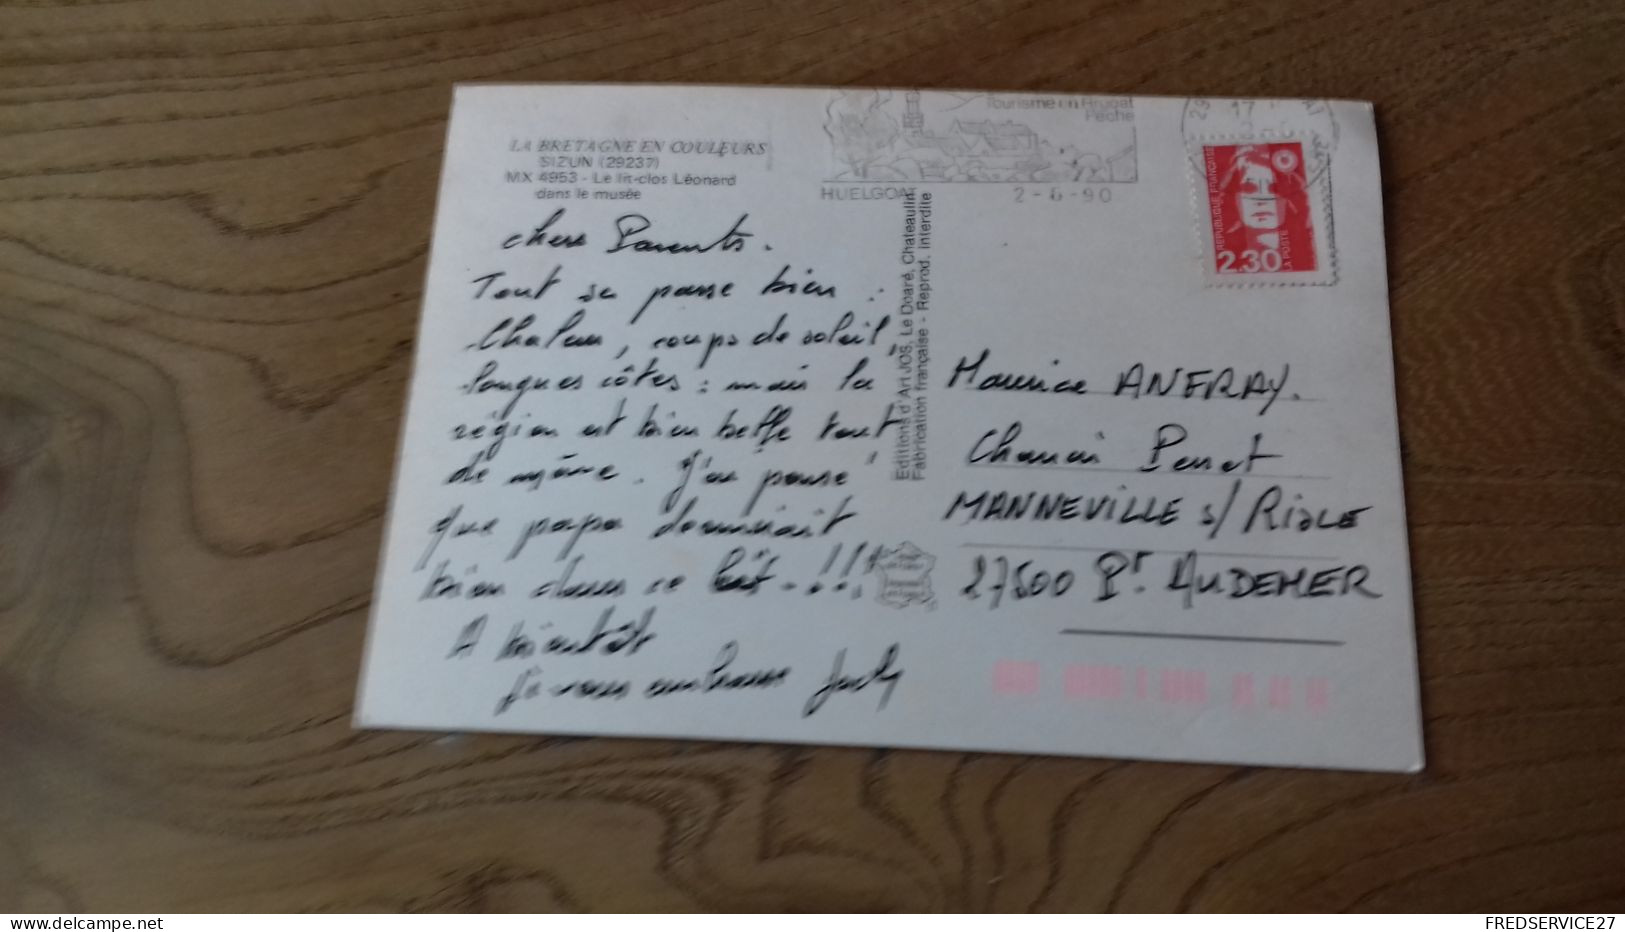 LA BRETAGNE EN COULEURS
SIZUN (29237)
MX 4953 - Le lit-clos Léonard
dans le musée
chers Parents.
Tout se passe bien :
Chaleur, coups de soleil,
longues côtes : mais la
région est bien belle tout
de même. J'ai pensé
que papa dormirait
bien dans ce lit - !!!
A bientôt
Je vous embrasse
Editions d'Art JOS, Le Doaré, Chateaulin
Fabrication française - Reprod. interdite
Tourisme en Argoat
Pêche
HUELGOAT 2-6-90
17
REPUBLIQUE FRANÇAISE
2,30
LA POSTE
Maurice ANFRAY.
Chemin Perret
MANNEVILLE s/ RISLE
27500 Pt. AUDEMER
FREDSERVICE27